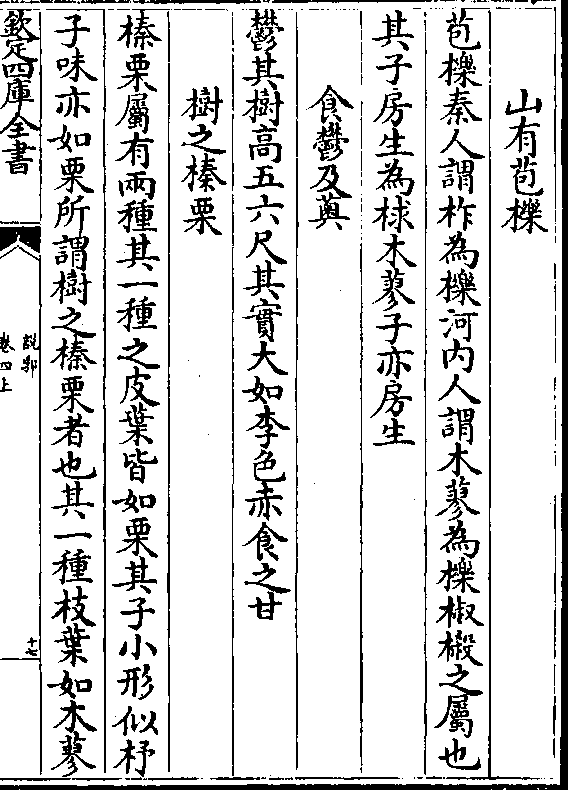 山有苞櫟
苞櫟秦人謂柞為櫟河内人謂木蓼為櫟椒樧之屬也
其子房生為梂木蓼子亦房生
食鬱及薁
鬱其樹髙五六尺其實大如李色赤食之甘
樹之榛栗
榛栗屬有兩種其一種之皮葉皆如栗其子小形似杼
子味亦如栗所謂樹之榛栗者也其一種枝葉如木蓼
欽定四庫全書
説郛
卷四上
十七